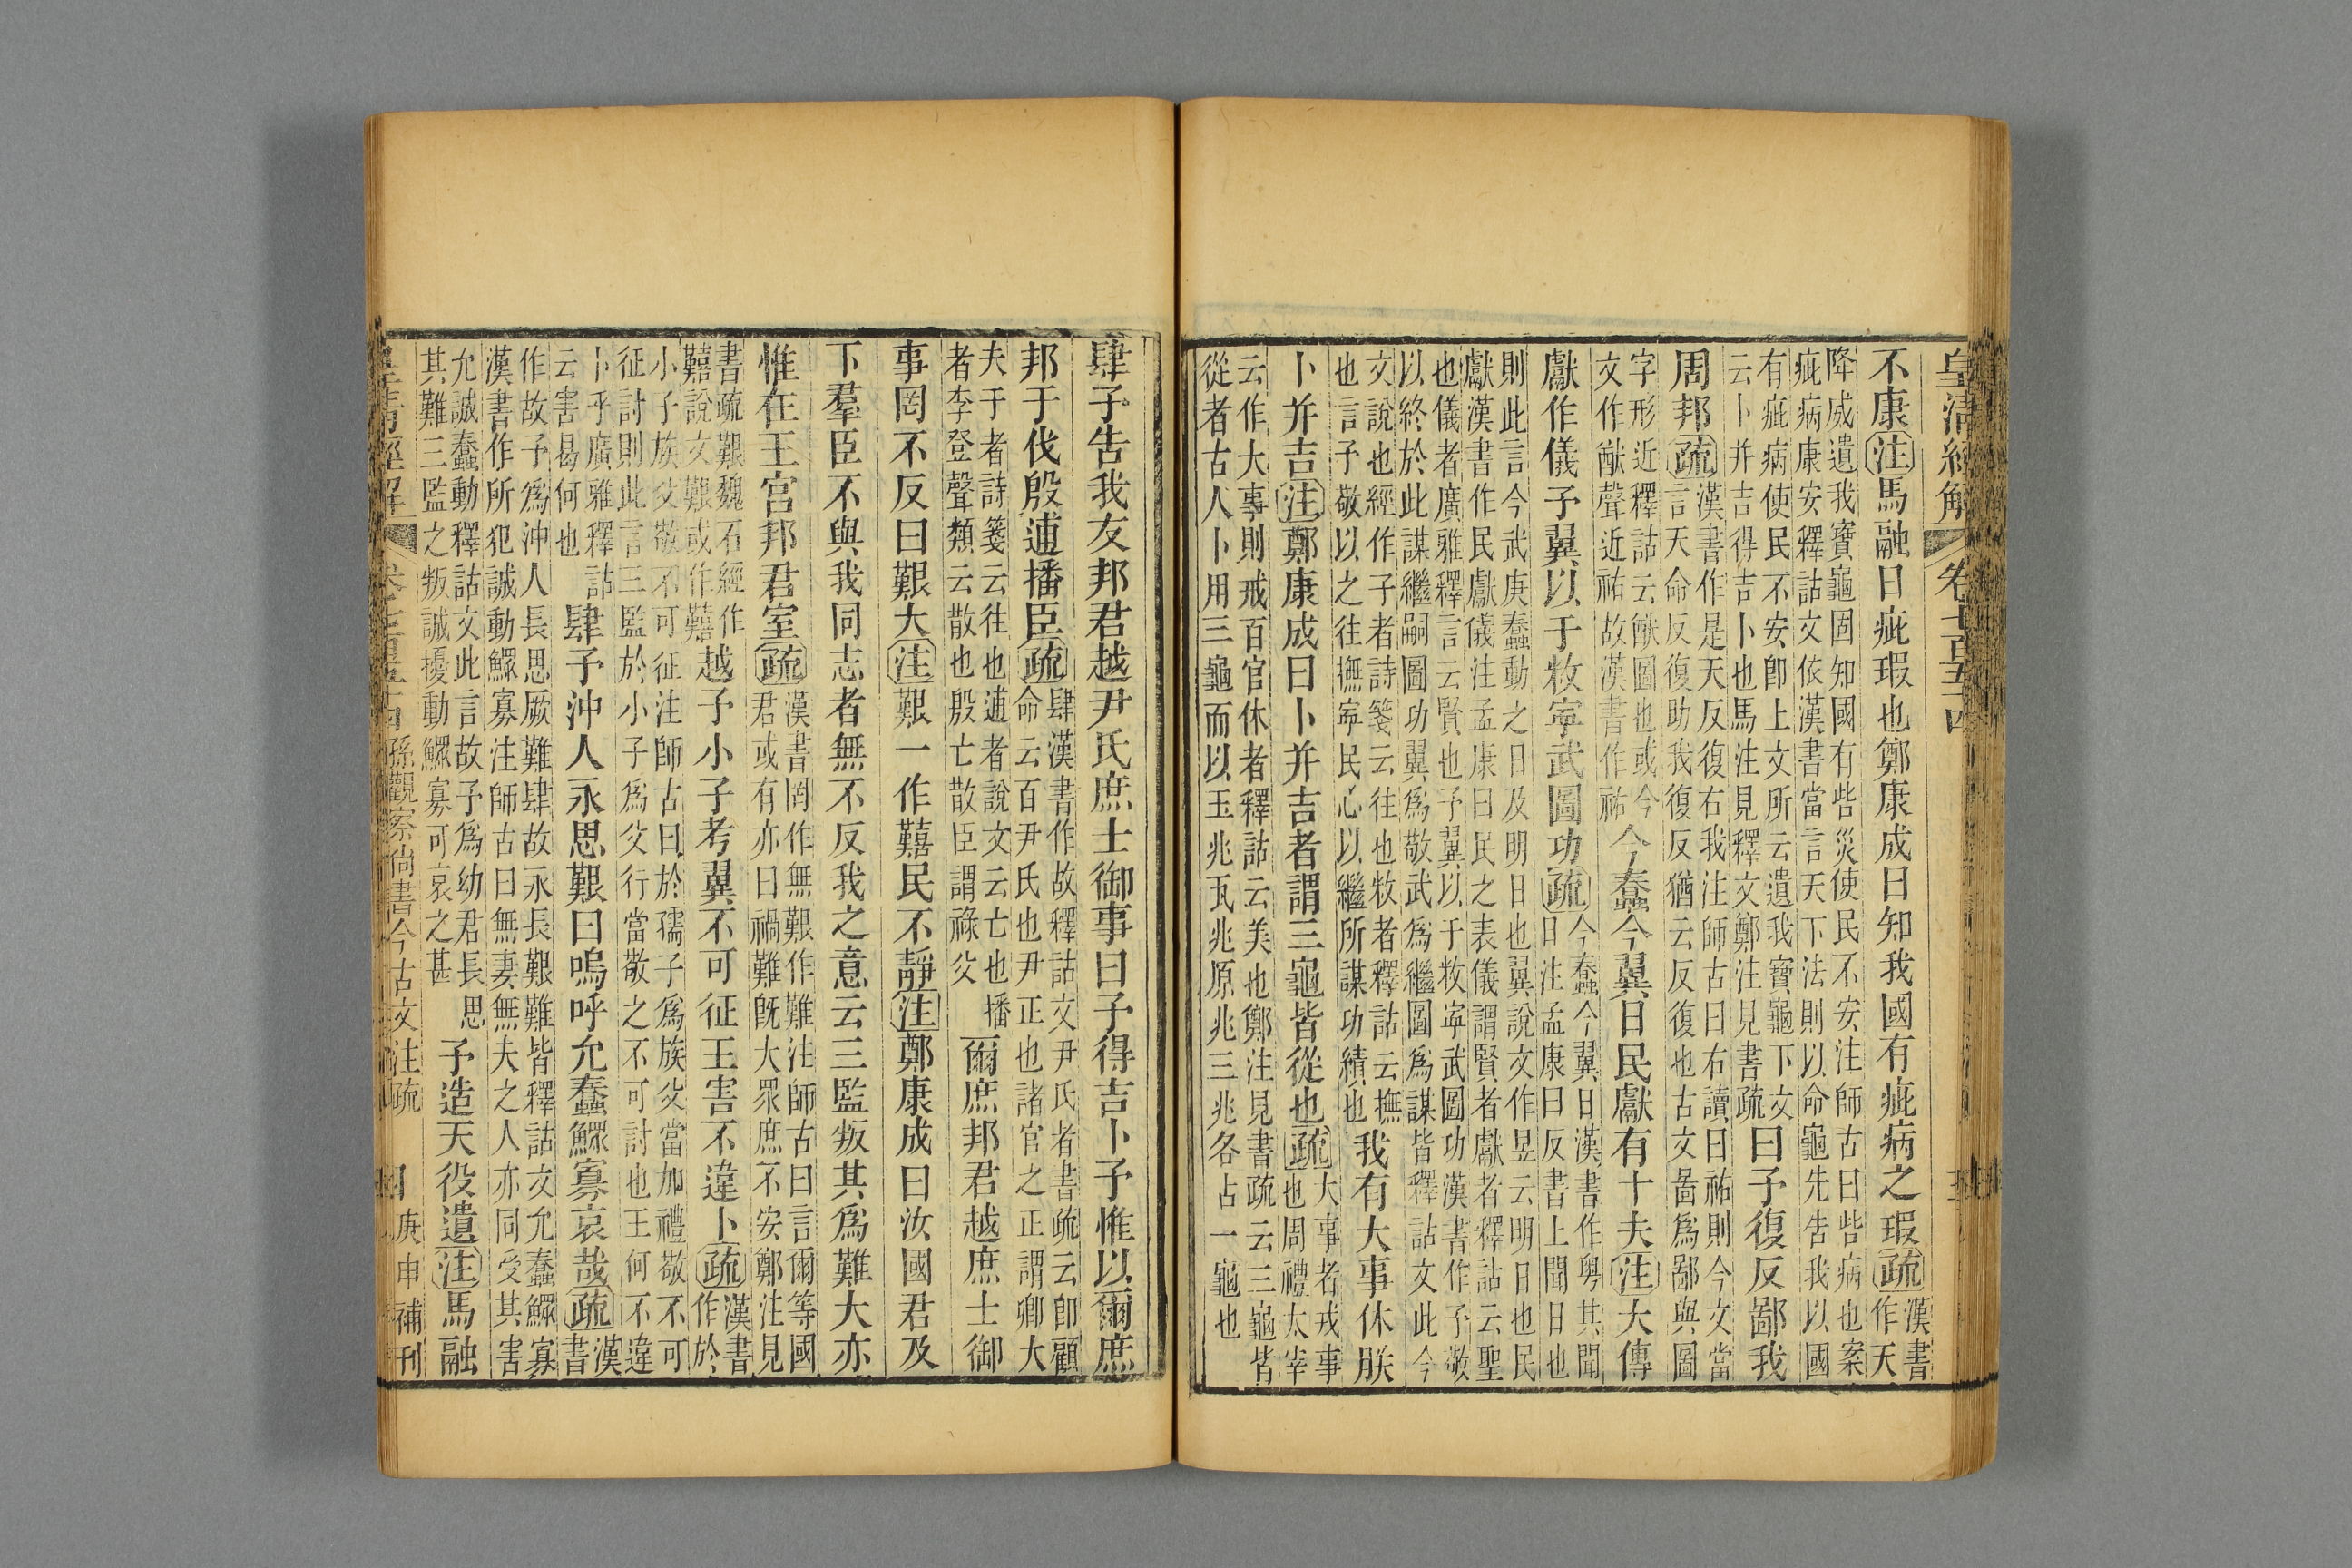 皇清經解 卷七百五十四
不康注馬融曰疵瑕也鄭康成曰知我國有疵病之瑕疏漢書作天
降威遺我寶龜固知國有呰災使民不安注師古曰呰病也案
疵病康安釋詁文依漢書當言天下法則以命龜先告我以國
有疵病使民不安卽上文所云遺我寶龜下文曰予復反鄙我
云卜并吉得吉卜也馬注見釋文鄭注見書疏
周邦疏漢書作是天反復右我注師古曰右讀曰祐則今文當
言天命反復助我復反猶云反復也古文啚爲鄙與圖
字形近釋詁云猷圖也或今今蠢今翼日民獻有十夫注大傳
文作猷聲近祐故漢書作祐
獻作儀予翼以于敉寜武圖功疏今蠢今翼日漢書作粤其聞
日注孟康曰反書上聞日也
則此言今武庚蠢動之日及明日也翼說文作昱云明日也民
獻漢書作民獻儀注孟康曰民之表儀謂賢者獻者釋詁云聖
也儀者廣雅釋言云賢也予翼以于敉寜武圖功漢書作予敬
以終於此謀繼嗣圖功翼爲敬武爲繼圖爲謀皆釋詁文此今
文說也經作予者詩箋云往也敉者釋詁云撫我有大事休朕
也言予敬以之往撫寜民心以繼所謀功績也
卜并吉注鄭康成曰卜并吉者謂三龜皆從也疏大事者戎事
也周禮太宰
云作大事則戒百官休者釋詁云美也鄭注見書疏云三龜皆
從者古人卜用三龜而以玉兆瓦兆原兆三兆各占一龜也
肆予告我友邦君越尹氏庶士御事曰予得吉卜予惟以爾庶
邦于伐殷逋播臣疏肆漢書作故釋詁文尹氏者書疏云卽顧
命云百尹氏也尹正也諸官之正謂卿大
夫于者詩箋云往也逋者說文云亡也播爾庶邦君越庶士御
者李登聲類云散也殷亡散臣謂祿父
事罔不反曰艱大注艱一作囏民不靜注鄭康成曰汝國君及
下羣臣不與我同志者無不反我之意云三監叛其爲難大亦
惟在王宫邦君室疏漢書罔作無艱作難注師古曰言爾等國
君或有亦曰禍難旣大眾庶不安鄭注見
書疏艱魏石經作越予小子考翼不可征王害不違卜疏漢書
囏說文艱或作囏作於
小子族父敬不可征注師古曰於孺子爲族父當加禮敬不可
征討則此言三監於小子爲父行當敬之不可討也王何不違
卜乎廣雅釋詁肆予沖人永思艱曰嗚呼允蠢鰥寡哀哉疏漢
云害曷何也書
作故予爲沖人長思厥難肆故永長艱難皆釋詁文允蠢鰥寡
漢書作所犯誠動鰥寡注師古曰無妻無夫之人亦同受其害
允誠蠢動釋詁文此言故予爲幼君長思予造天役遺注馬融
其難三監之叛誠擾動鰥寡可哀之甚
皇清經解 卷七百五十四 孫觀察尙書今古文注疏 庚申補刊